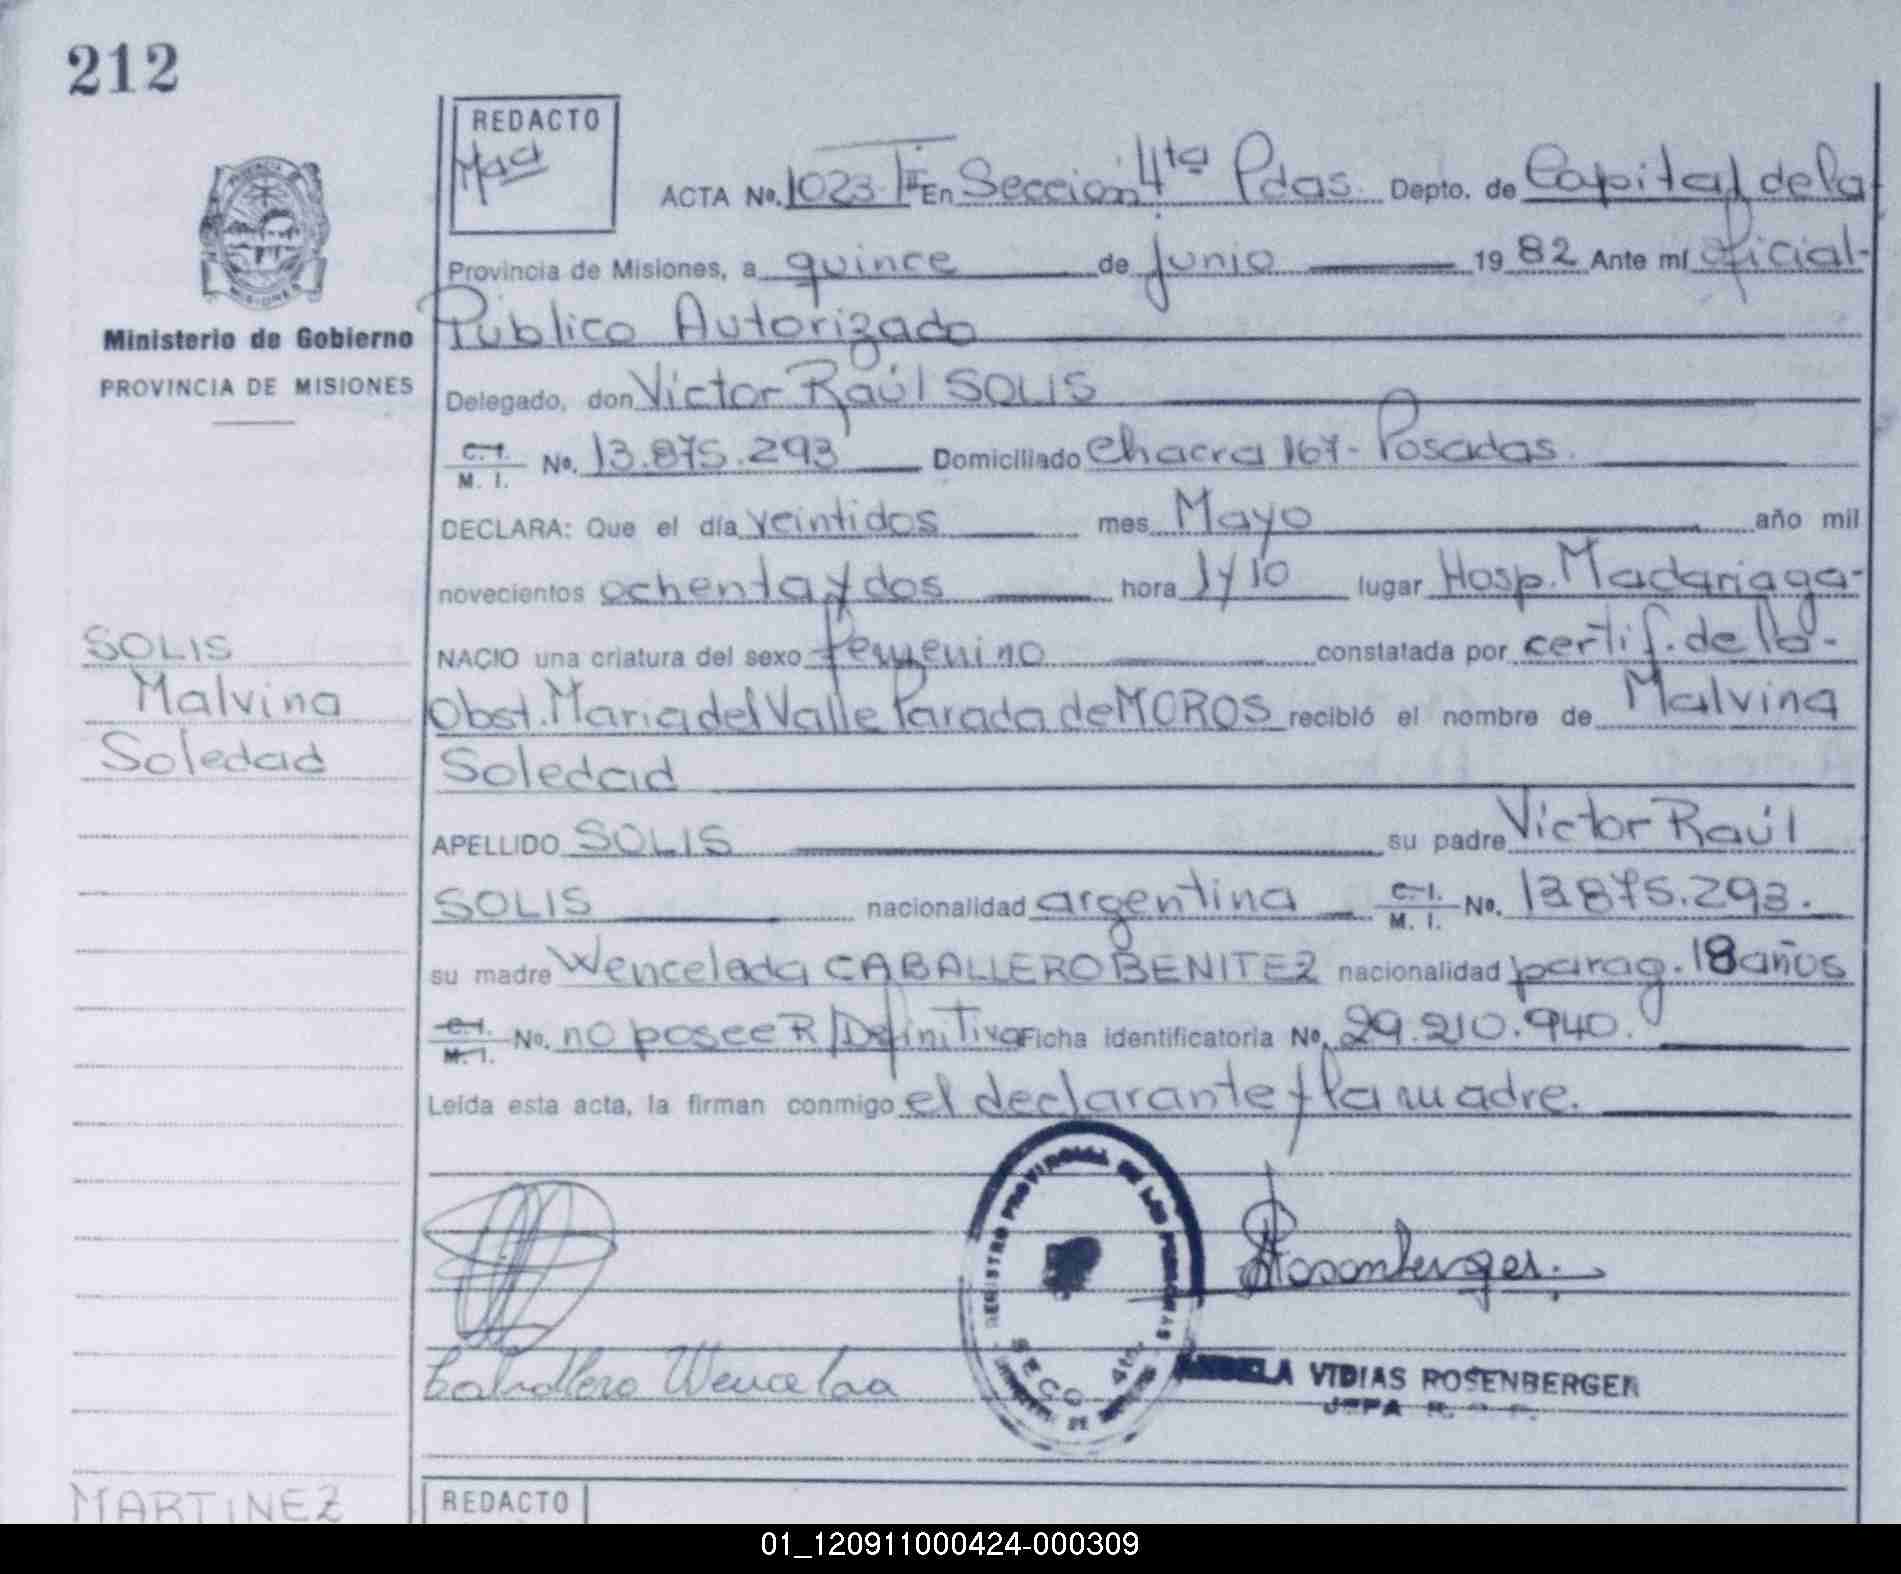 212
REDACTO
ACTA No. 1023 En Sección 4ta Pdas. Depto. de Capital de la
Provincia de Misiones, a quince de junio 1982 Ante mí Oficial-
Público Autorizado
Ministerio de Gobierno
PROVINCIA DE MISIONES
Delegado, don Víctor Raúl SOLIS
C. I. M. I. No. 13.875.293 Domiciliado Chacra 167- Posadas.
DECLARA: Que el día veintidos mes Mayo año mil
novecientos ochenta y dos hora 1 y 10 lugar Hosp. Madariaga-
SOLIS
NACIO una criatura del sexo femenino constatada por certif. de la-
Malvina
Obst. Maria del Valle Parada de MOROS recibió el nombre de Malvina
Soledad
Soledad
APELLIDO SOLIS su padre Víctor Raúl
SOLIS nacionalidad argentina C. I. M. I. No. 13.875.293.
su madre Wencelada CABALLERO BENITEZ nacionalidad parag. 18 años
C. I. M. I. No. no posee R/Definitiva Ficha identificatoria No. 29.210.940.
Leída esta acta, la firman conmigo el declarante y la madre.
REGISTRO PROVINCIAL DE LAS PERSONAS
SECC 4ta.
Rosenberger.
Caballero Wencelaa
VIDIAS ROSENBERGER
JEFA
MARTINEZ
REDACTO
01_120911000424-000309